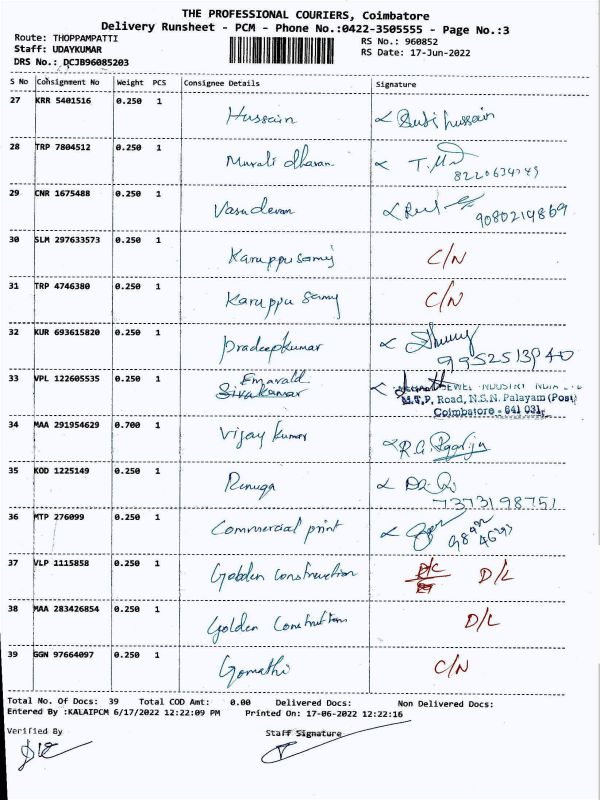 THE PROFESSIONAL COURIERS, Coimbatore
Delivery Runsheet - PCM - Phone No.:0422-3505555 - Page No.:3
Route: THOPPAMPATTI RS No.: 960852
Staff: UDAYKUMAR RS Date: 17-Jun-2022
DRS No.: DCJB96085203
S No Consignment No Weight PCS Consignee Details Signature
27 KRR 5401516 0.250 1 Hussain
28 TRP 7804512 0.250 1 Murali dharan
29 CNR 1675488 0.250 1 Vasudevan 9080219869
30 SLM 297633573 0.250 1 Karuppusamy C/N
31 TRP 4746380 0.250 1 Karuppu Samy C/N
32 KUR 693615820 0.250 1 Pradeepkumar
33 VPL 122605535 0.250 1 Emarald
Sivakumar
M.T.P. Road, N.S.N. Palayam (Post)
Coimbatore - 641 031.
34 MAA 291954629 0.700 1 Vijay kumar
35 KOD 1225149 0.250 1 Renuga
7373198751
36 MTP 276099 0.250 1 Commercial print
37 VLP 1115858 0.250 1 Golden Construction D/C D/L
38 MAA 283426854 0.250 1 Golden Construction D/L
39 GGN 97664097 0.250 1 Gomathi C/N
Total No. Of Docs: 39 Total COD Amt: 0.00 Delivered Docs: Non Delivered Docs:
Entered By :KALAIPCM 6/17/2022 12:22:09 PM Printed On: 17-06-2022 12:22:16
Verified By Staff Signature